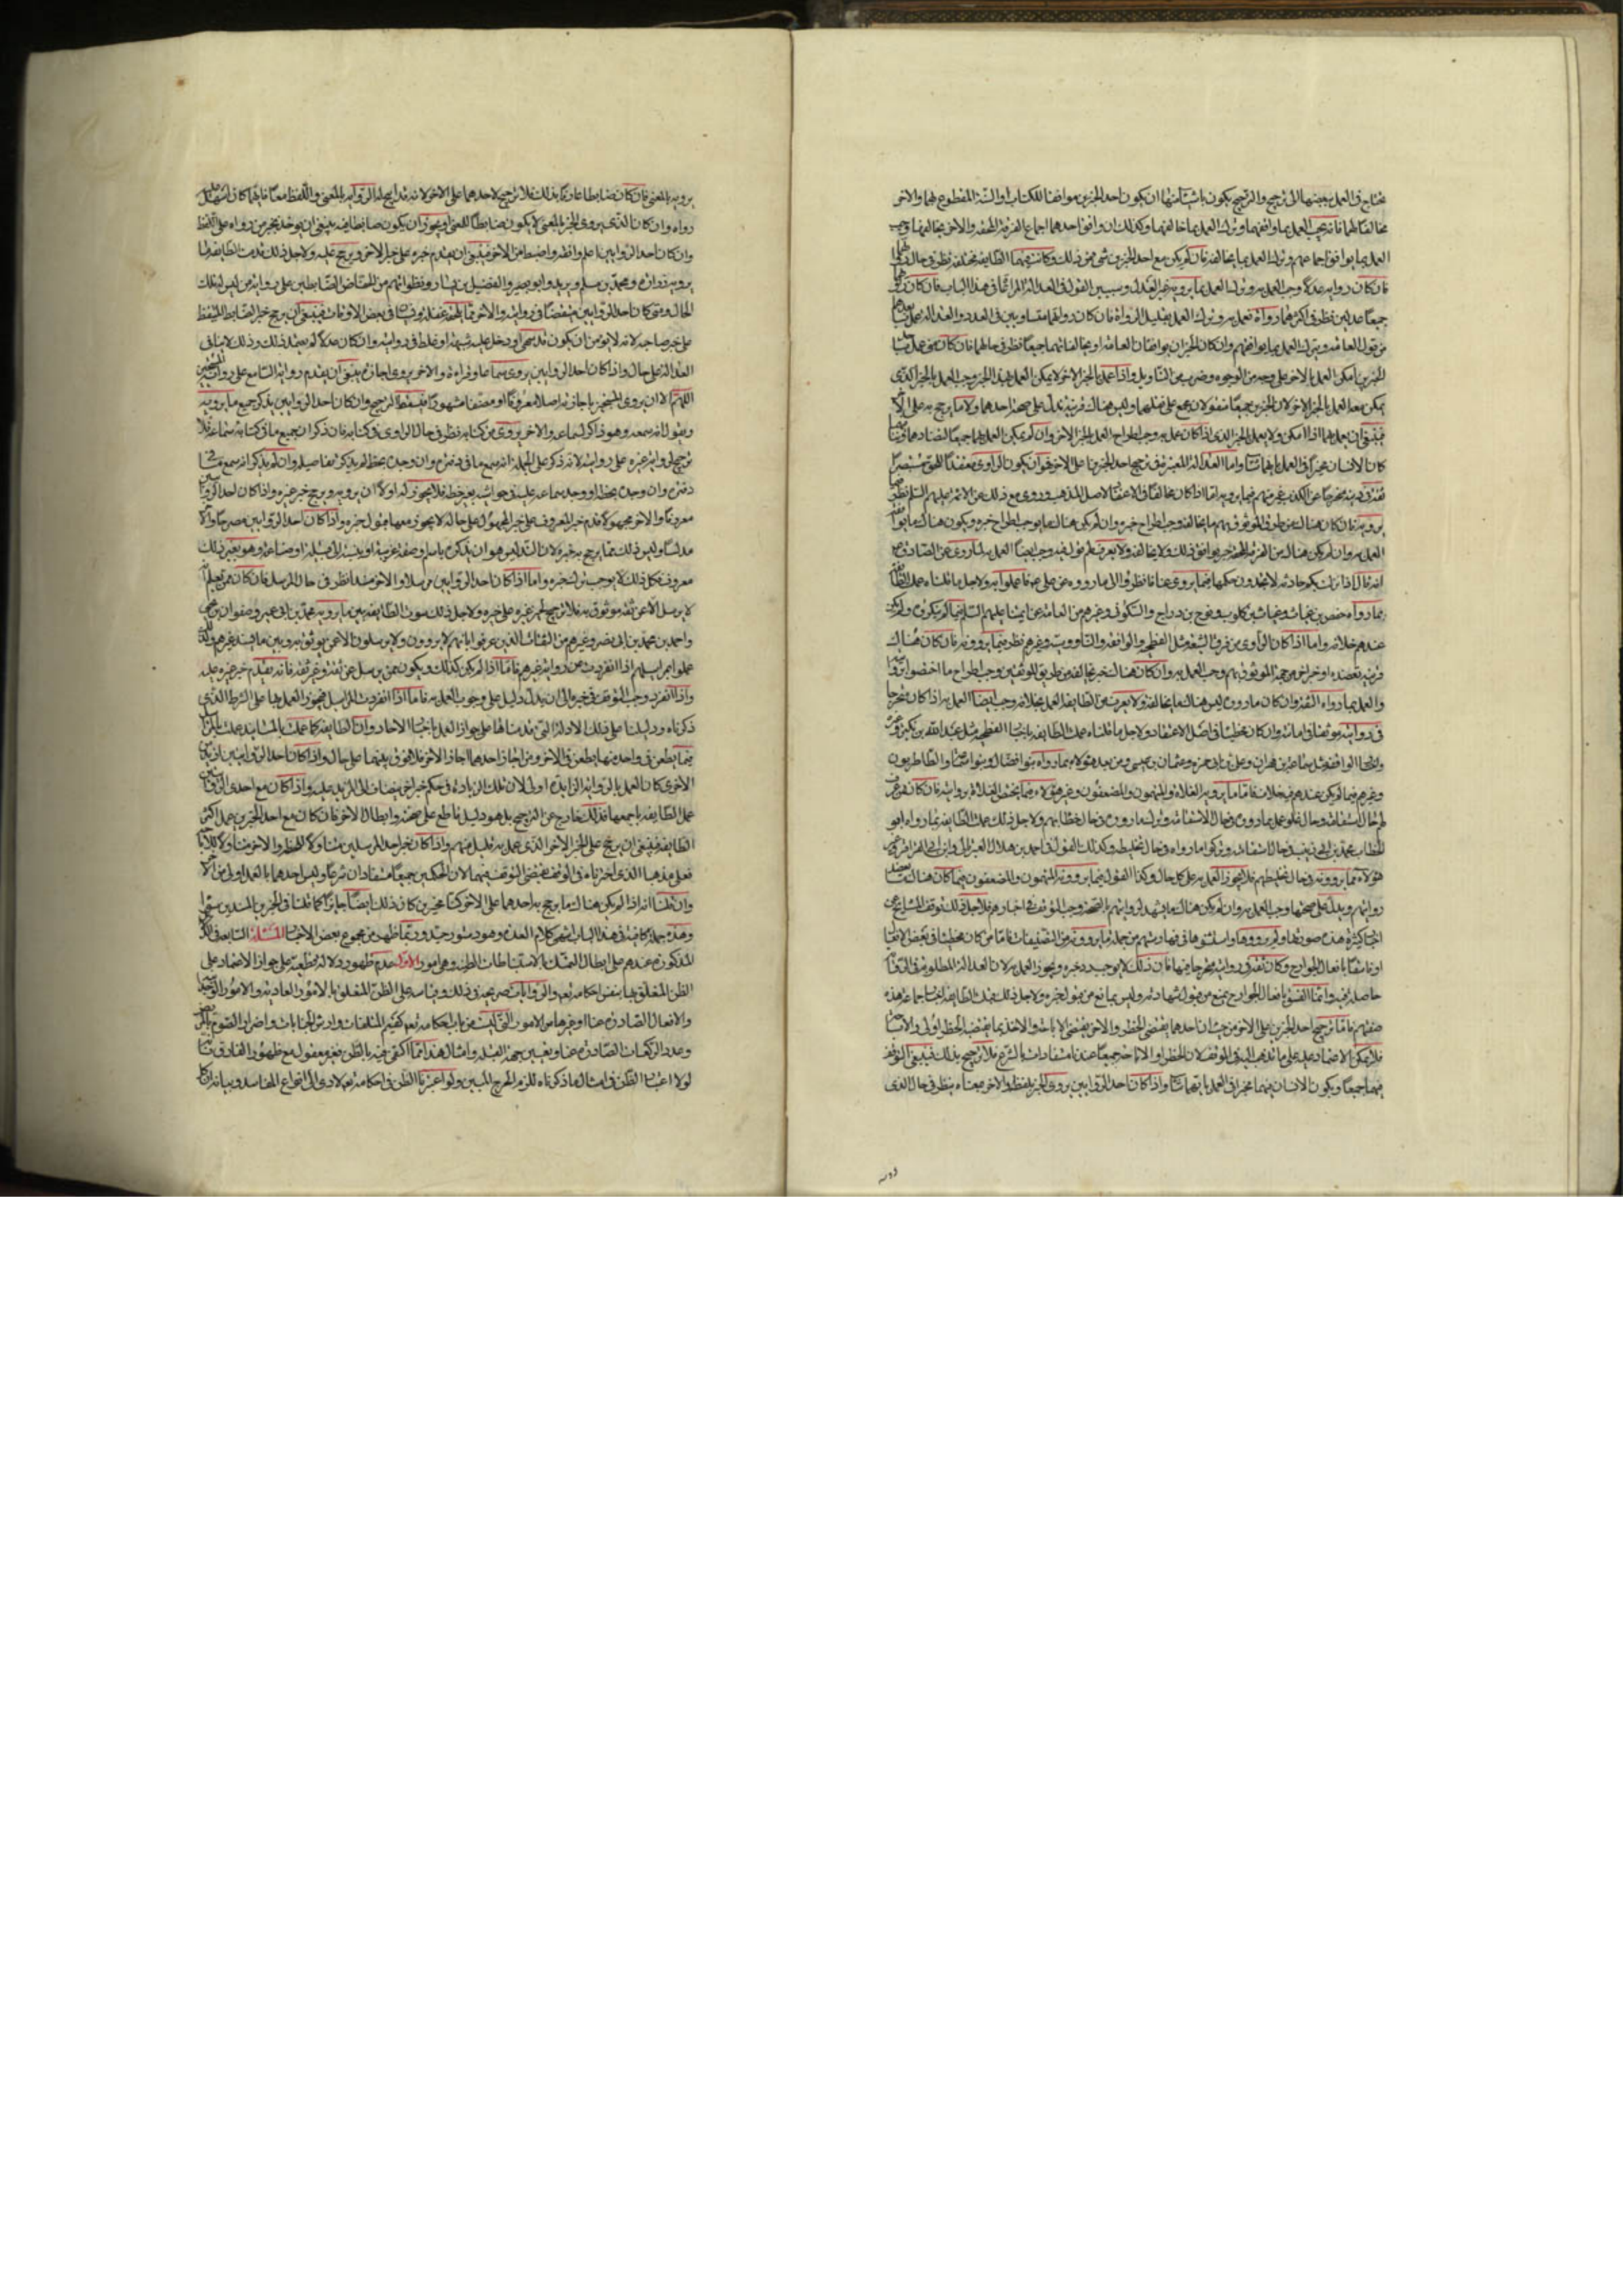 يحتاج في العمل ببعضها الى ترجيح والترجيح يكون باشياء منها ان يكون احد الخبرين موافقا للكتاب او السنة المقطوع بها والاخر
مخالفا لهما فانه يجب العمل بما وافقهما وترك العمل بما خالفهما وكذلك ان وافق احدهما اجماع الفرقة المحقة والاخر يخالفها وجب
العمل بما يوافق اجماعهم وترك العمل بما يخالفه فان لم يكن مع احد الخبرين شئ من ذلك وكانت فتيا الطايفة مختلفة نظر في حال رواتهما
فان كان رواية عدلا وجب العمل به وترك العمل بما يرويه غير العدل وسنبين القول في العدالة المراعاة في هذا الباب فان كان رواتهما
جميعا عدلين نظر في اكثرهما رواة فعمل به وترك العمل بقليل الرواة فان كان رواتهما متساويين في العدد والعدالة عمل بابعدهما
من قول العامة وترك العمل بما يوافقهم وان كان الخبران يوافقان العامة او يخالفانهما جميعا نظر في حالهما فان كان متى عمل
يمكن معه العمل بالخبر الاخر لان الخبرين جميعا منقولان مجمع على نقلهما وليس هناك قرينة تدل على صحة احدهما ولا ما يرجح به على الاخر
فينبغي ان يعمل بهما اذا امكن ولا يعمل بالخبر الذي اذا كان عمل به وجب اطراح العمل بالخبر الاخر وان لم يمكن العمل بهما جميعا لتضادهما
كان الانسان مخيرا في العمل بايهما شاء واما العدالة المعتبرة في ترجيح احد الخبرين على الاخر فهو ان يكون الراوي معتقدا للحق مستبصرا
العمل به وان لم يكن هناك من الفرقة المحقة خبر يوافق ذلك ولا يخالفه ولا يعرف لهم قول فيه وجب ايضا العمل به لما روي عن الصادق
انه قال اذا نزلت بكم حادثة لا تجدون حكمها فيما يروى عنا فانظروا الى ما رووه عن علي فاعملوا به ولاجل ما قلناه عملت الطايفة
بما رواه حفص بن غياث وغياث بن كلوب ونوح بن دراج والسكوني وغيرهم من العامة عن ائمتنا عليهم السلام فيما لم ينكروه ولم يكن
عندهم خلافه واما اذا كان الراوي من فرق الشيعة مثل الفطحية والواقفة والناووسية وغيرهم نظر فيما يروونه فان كان هناك
قرينة تعضده او خبر اخر من جهة الموثوقين بهم وجب العمل به وان كان هناك خبر يخالفه من طريق الموثقين وجب اطراح ما اختصوا بروايته
والعمل بما رواه الثقة وان كان ما رووه ليس هناك ما يخالفه ولا يعرف من الطايفة العمل بخلافه وجب ايضا العمل به اذا كان متحرجا
في روايته موثقا في امانته وان كان مخطئا في اصل الاعتقاد ولاجل ما قلناه عملت الطايفة باخبار الفطحية مثل عبد الله بن بكير وغيره
واخبار الواقفة مثل سماعة بن مهران وعلي بن ابي حمزة وعثمان بن عيسى ومن بعد هؤلاء بما رواه بنو فضال وبنو سماعة والطاطريون
وغيرهم فيما لم يكن عندهم فيه خلافه فاما ما يرويه الغلاة والمتهمون والمضعفون وغير هؤلاء فما يختص الغلاة بروايته فان كان ممن عرف
لهم حال استقامة وحال غلو عمل بما رووه في حال الاستقامة وترك ما رووه في حال خطائهم ولاجل ذلك عملت الطايفة بما رواه ابو
الخطاب محمد بن ابي زينب في حال استقامته وتركوا ما رواه في حال تخليطه وكذلك القول في احمد بن هلال العبرتائي وابن ابي العزاقر وغير
هؤلاء فما يروونه في حال تخليطهم فلا يجوز العمل به على كل حال وكذا القول فيما يرويه المتهمون والمضعفون فان كان هناك ما يعضد
روايتهم ويدل على صحتها وجب العمل به وان لم يكن هناك ما يشهد لروايتهم بالصحة وجب التوقف في اخبارهم فلاجل ذلك توقف المشايخ عن
اخبار كثيرة هذه صورتها ولم يرووها واستثنوها في فهارستهم من جملة ما يروونه من التصنيفات فاما من كان مخطئا في بعض الافعال
او فاسقا بافعال الجوارح وكان ثقة في روايته متحرجا فيها فان ذلك لا يوجب رد خبره ويجوز العمل به لان العدالة المطلوبة في الرواية
حاصلة فيه وانما الفسق بافعال الجوارح يمنع من قبول شهادته وليس بمانع من قبول خبره ولاجل ذلك قبلت الطايفة اخبار جماعة هذه
صفتهم فاما ترجيح احد الخبرين على الاخر من حيث ان احدهما يقتضي الحظر والاخر يقتضي الاباحة والاخذ بما يقتضيه الحظر اولى او الاباحة
فلا يمكن الاعتماد عليه على ما نذهب اليه في الوقف لان الحظر والاباحة جميعا عندنا مستفادان بالشرع فلا ترجيح بذلك فينبغي التوقف
فيهما جميعا ويكون الانسان فيهما مخيرا في العمل بايهما شاء واذا كان احد الراويين يروي الخبر بلفظه والاخر بمعناه ينظر في حال الذي
يرويه بالمعنى فان كان ضابطا عارفا بذلك فلا ترجيح لاحدهما على الاخر لانه قد ابيح له الرواية بالمعنى واللفظ معا فايهما كان اسهل عليه
رواه وان كان الذي يروي الخبر بالمعنى لا يكون ضابطا للمعنى او يجوز ان يكون غالطا فيه ينبغي ان يؤخذ بخبر من رواه على اللفظ
وان كان احد الراويين اعلم وافقه واضبط من الاخر فينبغي ان يقدم خبره على خبر الاخر ويرجح عليه ولاجل ذلك قدمت الطايفة ما
يرويه زرارة ومحمد بن مسلم وبريد وابو بصير والفضيل بن يسار ونظرائهم من الحفاظ الضابطين على رواية من ليس له تلك
الحال ومتى كان احد الراويين متيقظا في روايته والاخر ممن يلحقه غفلة ونسيان في بعض الاوقات فينبغي ان يرجح خبر الضابط المتيقظ
على خبر صاحبه لانه لا يؤمن ان يكون قد سهى او دخل عليه شبهة او غلط في روايته وان كان عدلا لم يتعمد ذلك وذلك لا ينافي
العدالة على حال واذا كان احد الراويين يروي سماعا وقراءة والاخر يروي اجازة ينبغي ان يقدم رواية السامع على رواية المستجيز
اللهم الا ان يروي المستجيز باجازته اصلا معروفا او مصنفا مشهورا فيسقط الترجيح وان كان احد الراويين يذكر جميع ما يرويه
ويقول انه سمعه وهو ذاكر لسماعه والاخر يرويه من كتابه نظر في حال الراوي من كتابه فان ذكر ان جميع ما في كتابه سماعه فلا
ترجيح لرواية غيره على روايته لانه ذكر على الجملة انه سمع ما في دفتره وان لم يذكر تفاصيله وان لم يذكر انه سمع
معروفا والاخر مجهولا قدم خبر المعروف على خبر المجهول
مدلسا وليس ذلك مما يرجح به خبره لان التدليس هو ان يذكره باسم او صفة غريبة او ينسبه الى قبيلة او صناعة وهو بغير ذلك
معروف فكل ذلك لا يوجب ترك خبره واما اذا كان احد الراويين مرسلا والاخر مسندا نظر في حال المرسل فان كان ممن يعلم انه
لا يرسل الا عن ثقة موثوق به فلا ترجيح لخبر غيره على خبره ولاجل ذلك سوت الطايفة بين ما يرويه محمد بن ابي عمير وصفوان بن يحيى
واحمد بن محمد بن ابي نصر وغيرهم من الثقات الذين عرفوا بانهم لا يروون ولا يرسلون الا عمن يوثق به وبين ما يسنده غيرهم ولذلك
عملوا بمراسيلهم اذا انفردت عن رواية غيرهم فاما اذا لم يكن كذلك ويكون ممن يرسل عن ثقة وغير ثقة فانه يقدم خبر غيره عليه
واذا انفرد وجب التوقف في خبره الى ان يدل دليل على وجوب العمل به فاما اذا انفردت المراسيل فيجوز العمل بها على الشرط الذي
ذكرناه ودليلنا على ذلك الادلة التي قدمناها على جواز العمل باخبار الاحاد وان الطايفة كما عملت بالمسانيد عملت بالمراسيل
فما يطعن في واحد منهما يطعن في الاخر ومن اجاز احدهما اجاز الاخر فلا فرق بينهما على حال واذا كان احدى الروايتين ازيد من
الاخرى كان العمل بالرواية الزايدة اولى لان تلك الزيادة في حكم خبر اخر ينضاف الى المزيد عليه واذا كان مع احدى الروايتين
عمل الطايفة باجمعها فذلك خارج عن الترجيح بل هو دليل قاطع على صحته وابطال الاخر فان كان مع احد الخبرين عمل اكثر
الطايفة فينبغي ان يرجح على الخبر الاخر الذي عمل به قليل منهم واذا كان خبر احد المرسلين متناولا للحظر والاخر متناولا للاباحة
فعلى مذهبنا الذي اخترناه في الوقف يقتضي التوقف فيهما لان الحكمين جميعا مستفادان شرعا وليس احدهما بالعمل اولى من الاخر
وان قلنا انه اذا لم يكن هناك ما يرجح به احدهما على الاخر كنا مخيرين كان ذلك ايضا جايزا كما قلنا في الخبرين المسندين
وهذه جملة كافية في هذا الباب انتهى كلام العدة
المذكورة عندهم على ابطال التمسك بالاستنباطات الظنية وهي امور الاول عدم ظهور دلالة قطعية على جواز الاعتماد على
الظن المتعلق بنفس احكامه تعالى والروايات صريحة في ذلك وقياسه على الظن المتعلق بالامور العادية والامور الوجدانية
والافعال الصادرة عنا او غيرها من الامور التي ليست من باب احكامه تعالى كقيم المتلفات وارش الجنايات واضرار الصوم بالمريض
وعدد الركعات الصادرة عنا وتعيين جهة القبلة وامثال هذا مما اكتفى فيه بالظن فغير معقول مع ظهور الفارق
لولا اعتبار الظن في امثال ما ذكرناه للزم الحرج المبين ولو اعتبرنا الظن في احكامه تعالى لادى الى انواع المفاسد